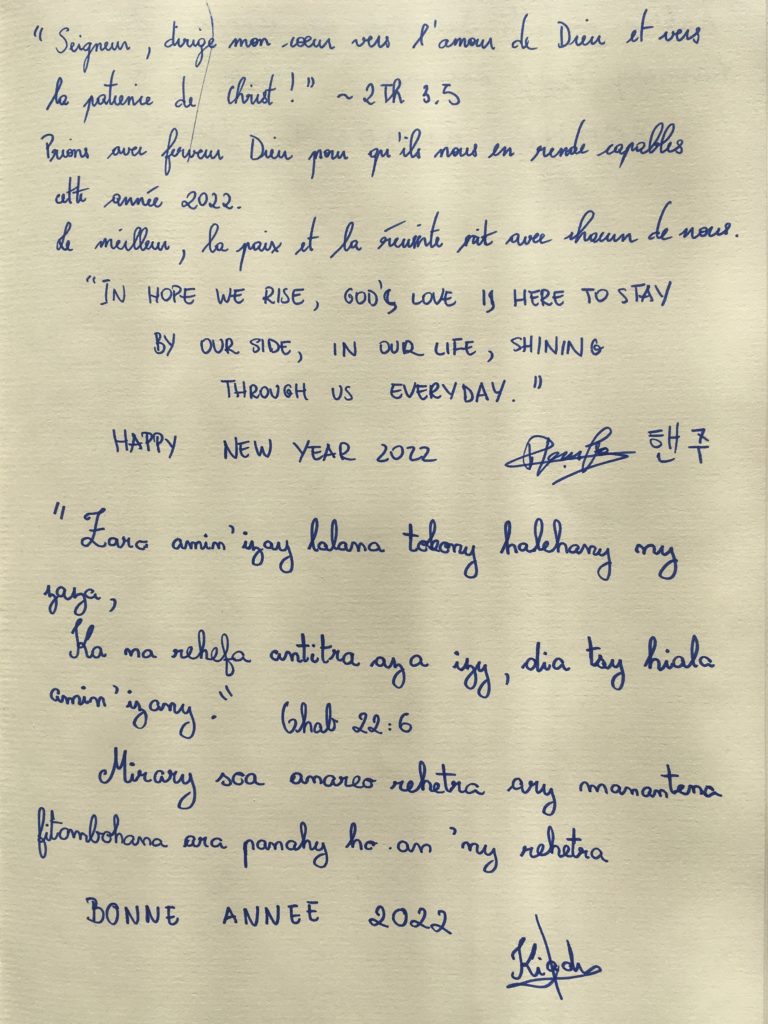 “ Seigneur, dirige mon coeur vers l'amour de Dieu et vers
la patience de Christ ! ” ~ 2 Th 3.5
Prions avec ferveur Dieu pour qu'ils nous en rende capables
cette année 2022.
Le meilleur, la paix et la réussite soit avec chacun de nous.
“ IN HOPE WE RISE, GOD'S LOVE IS HERE TO STAY
BY OUR SIDE, IN OUR LIFE, SHINING
THROUGH US EVERYDAY. ”
HAPPY NEW YEAR 2022 핸주
“ Zaro amin'izay lalana tokony halehany ny
zaza,
Ka na rehefa antitra aza izy, dia tsy hiala
amin'izany. ” Ohab 22:6
Mirary soa anareo rehetra ary manantena
fitombohana ara panahy ho an 'ny rehetra
BONNE ANNEE 2022